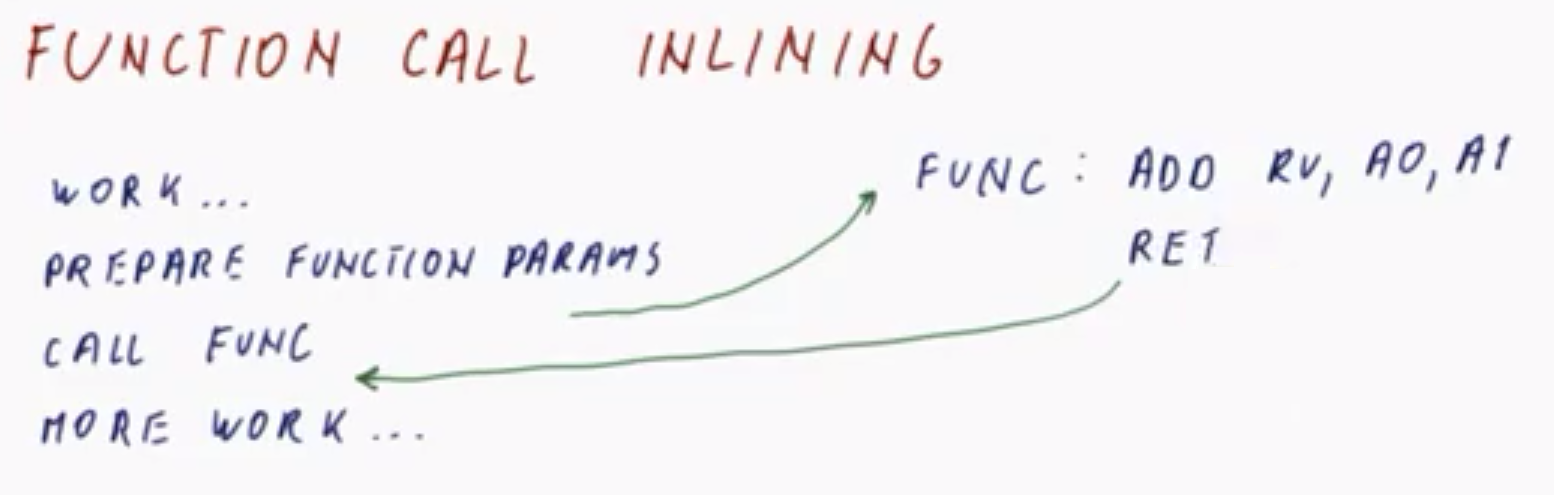 FUNCTION CALL INLINING
WORK...
PREPARE FUNCTION PARAMS
CALL FUNC
MORE WORK...
FUNC: ADD RV, A0, A1
RET